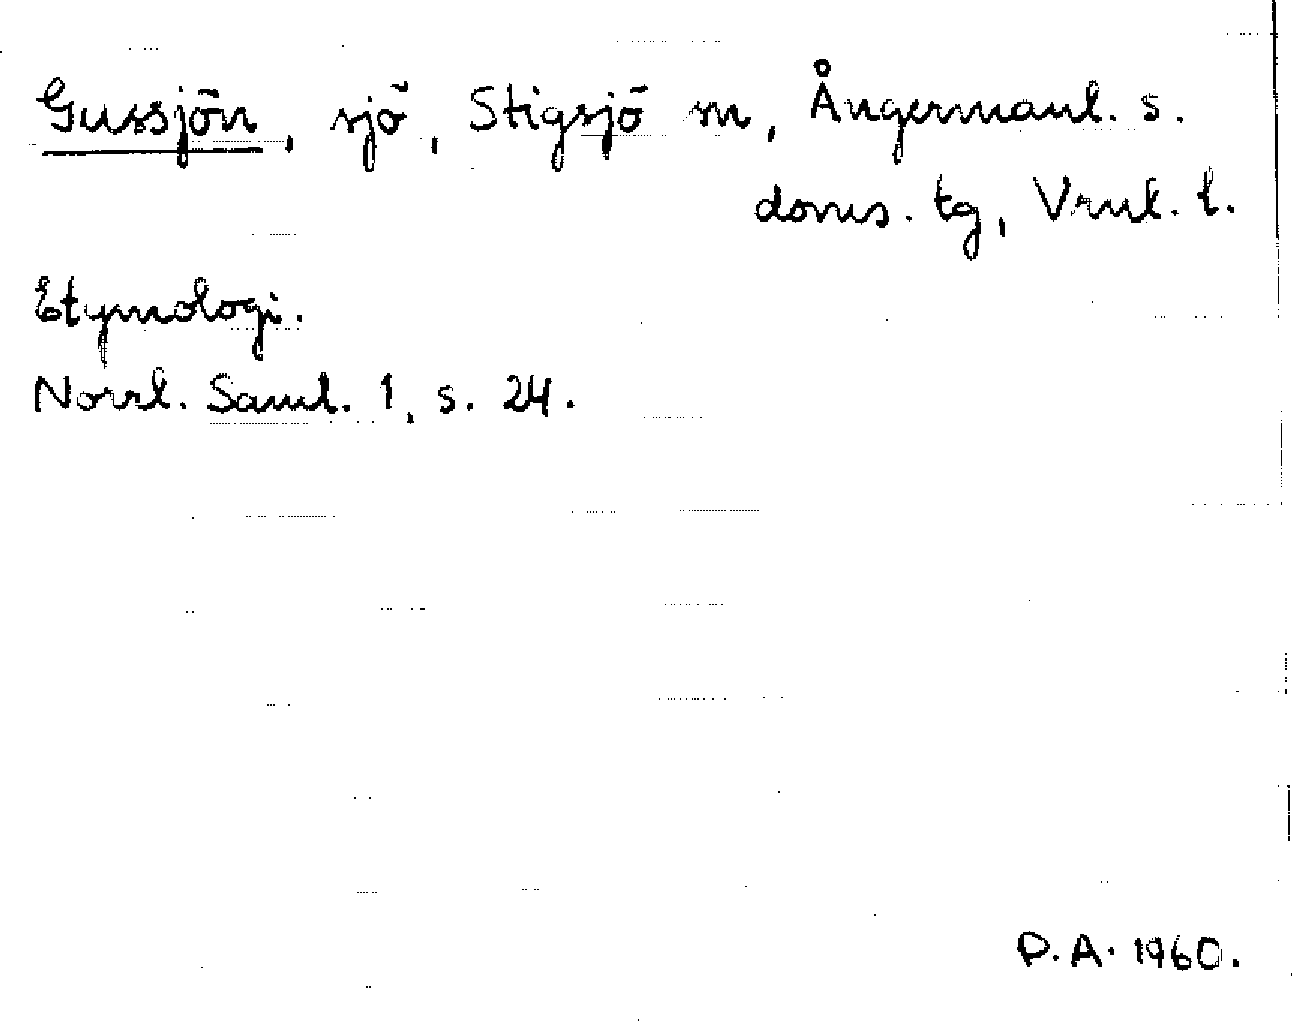 Gussjön, sjö, Stigsjö sn, Ångermanl. s.
doms. tg, Vrnl. l.
Etymologi.
Norrl. Saml. 1, s. 24.
P.A. 1960.